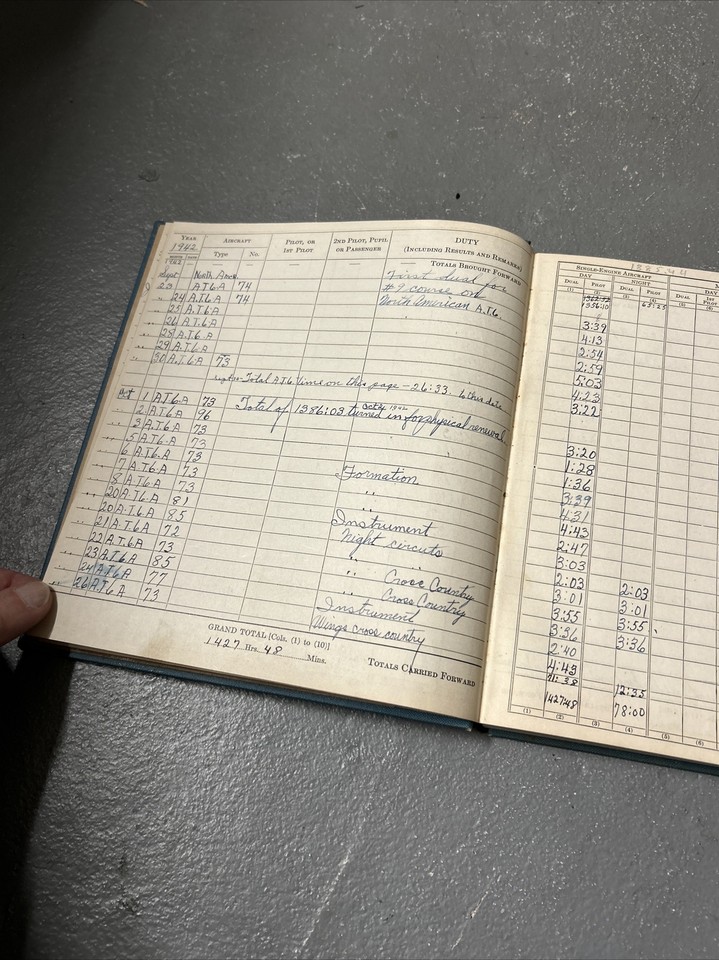 YEAR AIRCRAFT PILOT, OR 1ST PILOT 2ND PILOT, PUPIL OR PASSENGER DUTY (INCLUDING RESULTS AND REMARKS)
1942 Type No.
MONTH DATE
— — — TOTALS BROUGHT FORWARD
1942
Sept North Amer. First dual for
23 A.T.6A 74 #9 course on
" 24 A.T.6.A 74 North American A.T.6.
" 25 A.T.6A
" 26 A.T.6.A
" 28 A.T.6.A
" 29 A.T.6.A
" 30 A.T.6.A 73
Total A.T.6. time on this page - 26:33. to this date
Oct 1 A.T.6.A 73 Total of 1386:03 turned in for physical renewal
" 2 A.T.6A 96 Oct 2
" 3 A.T.6.A 73
" 5 A.T.6.A 73
" 6 A.T.6.A 73 Formation
" 7 A.T.6.A 73 "
" 8 A.T.6.A 73 "
" 20 A.T.6.A 81 Instrument
" 20 A.T.6.A 85 Night circuits
" 21 A.T.6A 72 "
" 22 A.T.6A 73 " Cross Country
" 23 A.T.6A 85 Cross Country
" 24 A.T.6A 77 Instrument
" 26 A.T.6A 73 Wings cross country
GRAND TOTAL [Cols. (1) to (10)]
1427 Hrs. 48 Mins.
TOTALS CARRIED FORWARD
SINGLE-ENGINE AIRCRAFT
DAY NIGHT
DUAL PILOT DUAL PILOT 1ST PILOT
(1) (2) (3) (4) (5) (6)
1356:10 65:25
3:39
4:13
2:54
2:59
5:03
4:23
3:22
3:20
1:28
1:36
3:39
4:31
4:43
2:47
3:03
2:03 2:03
3:01 3:01
3:55 3:55
3:36 3:36
2:40
4:49
71:38 12:35
1427:48 78:00
(1) (2) (3) (4) (5) (6)